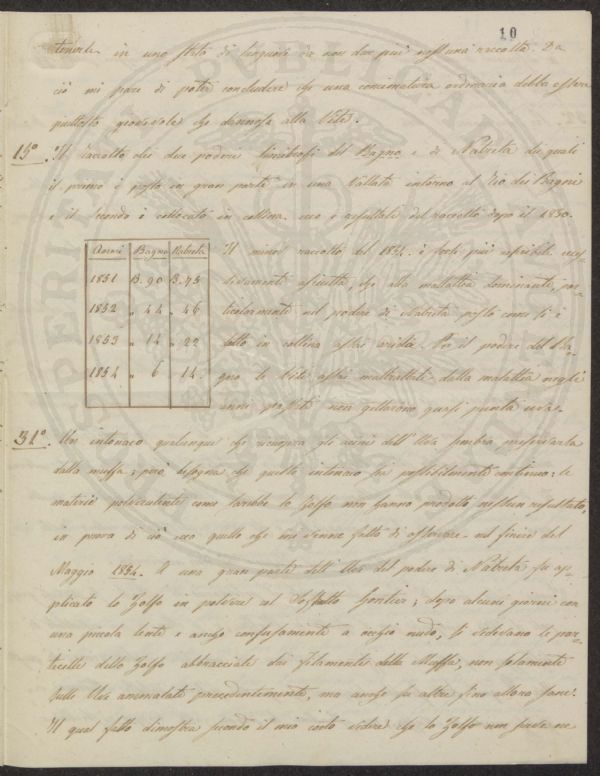 10
in uno stato di languore da non dar più nessuna raccolta. Da
ciò mi pare di poter concludere che una concimatura ordinaria debba essere
piuttosto giovevole che dannosa alla Vite.
15º Il raccolto dei due poderi limitrofi del Bagno e di Nabieta dei quali
il primo è posto in gran parte in una Vallata intorno al Rio dei Bagni
e il secondo è collocato in collina. ecco i resultati del raccolto dopo il 1850.
Anni Bagno Nabieta
1851 B. 90 B. 75
1852 " 44 " 46
1853 " 14 " 22
1854 " 6 " 14.
Il minor raccolto del 1854. è forse più
asciutta, che alla malattia dominante, par=
ticolarmente nel podere di Nabieta posto come si è
detto in collina assai arida. Per il podere del Ba=
gno le Viti assai maltrattate dalla malattia negli
anni passati non gettarono quasi punta uva.
31º. Un intonaco qualunque che ricuopra gli acini dell'Uva sembra preservarla
dalla muffa; però bisogna che questo intonaco sia possibilmente continuo: le
materie polverulente come sarebbe lo Zolfo non hanno prodotto nessun resultato,
in prova di ciò ecco quello che mi venne fatto di osservare nel finire del
Maggio 1854. A una gran parte dell'Uva del podere di Nabieta fu ap=
plicato lo Zolfo in polvere col Soffietto Gontier; dopo alcuni giorni con
una piccola lente e anche confusamente a occhio nudo, si vedevano le par=
ticelle dello Zolfo abbracciate dai filamenti della Muffa, non solamente
sulle Uve ammalate precedentemente, ma anche su altre fino allora sane.
Il qual fatto dimostra secondo il mio corto vedere che lo Zolfo non fuse ne